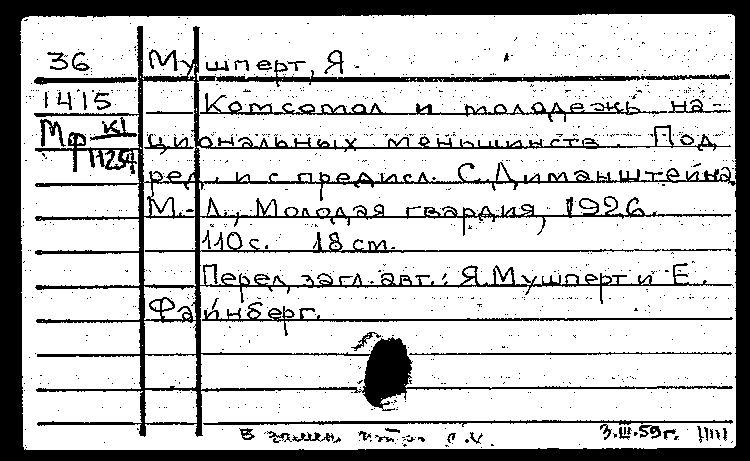 36 Мушперт, Я.
1415 Комсомол и молодежь на-
Мф К1 циональных меньшинств. Под
11254 ред. и с предисл. С. Диманштейна
М.-Л., Молодая гвардия, 1926.
110 с. 18 см.
Перед загл. авт.: Я. Мушперт и Е.
Файнберг.
В замен
3.III.59г.